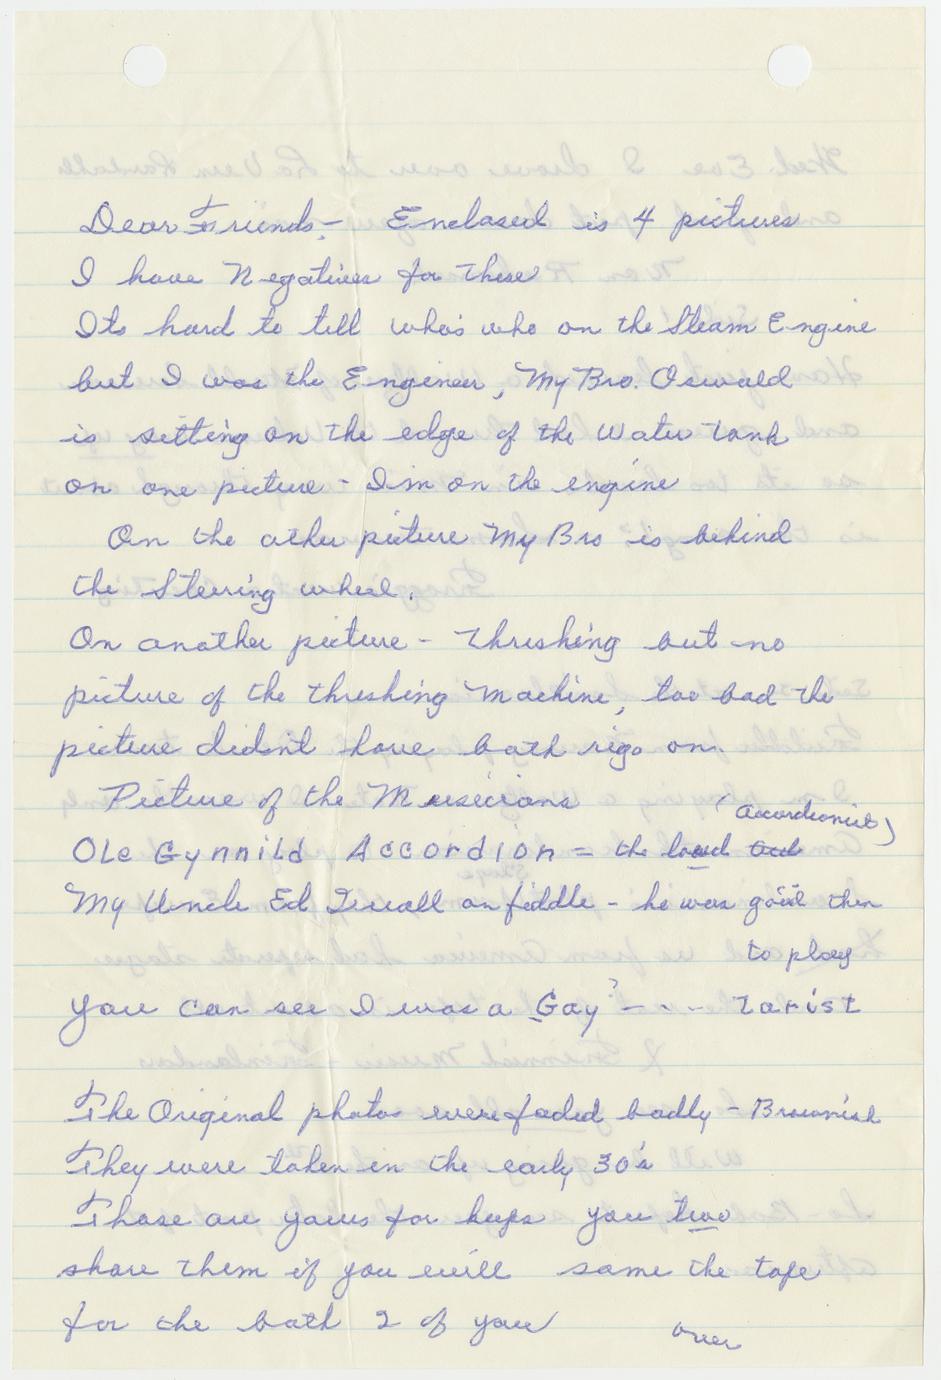 Dear Friends - Enclosed is 4 pictures
I have Negatives for these
Its hard to tell who's who on the Steam Engine
but I was the Engineer, My Bro. Oswald
is setting on the edge of the Water tank
on one picture - I'm on the engine
On the other picture My Bro is behind
the Steering wheel.
On another picture - Threshing but no
picture of the threshing machine, too bad the
picture didn't have both rigs on.
Picture of the Musicians
(accordionist)
Ole Gynnild Accordion = the loud
My Uncle Ed on fiddle - he was good then
to play
You can see I was a Gay? - - - tarist
The Original photos were faded badly - Brownish
They were taken in the early 30's
Those are yours for keeps you two
share them if you will same the tape
for the both 2 of you
over